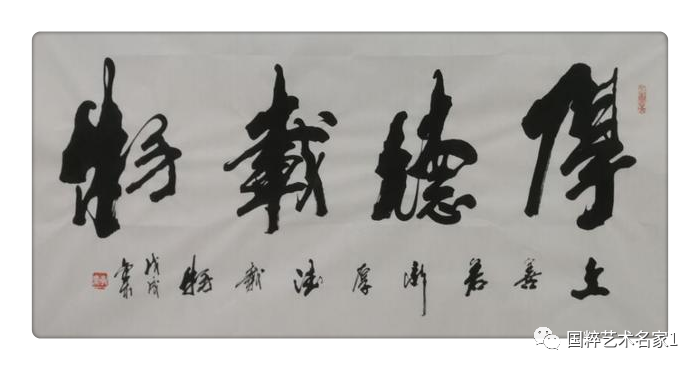 厚德載物
上善若厚德載物
戊戌
国粹艺术名家1